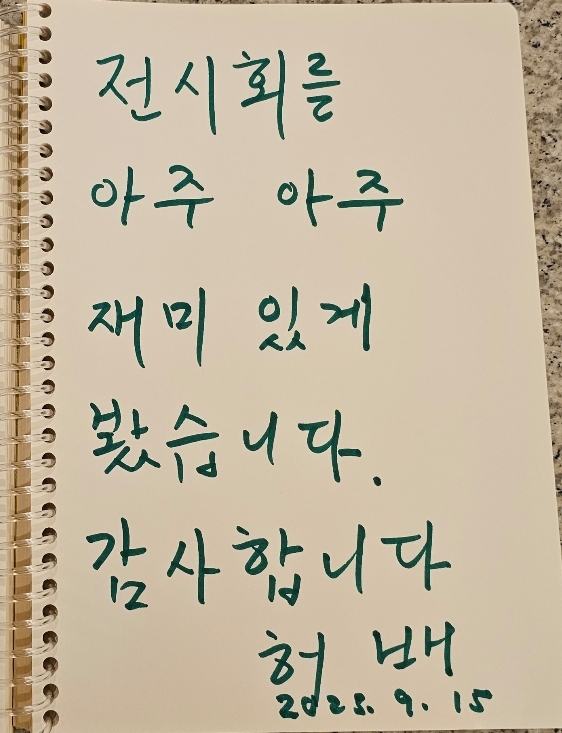 전시회를
아주 아주
재미 있게
봤습니다.
감사합니다
허 배
2025. 9. 15